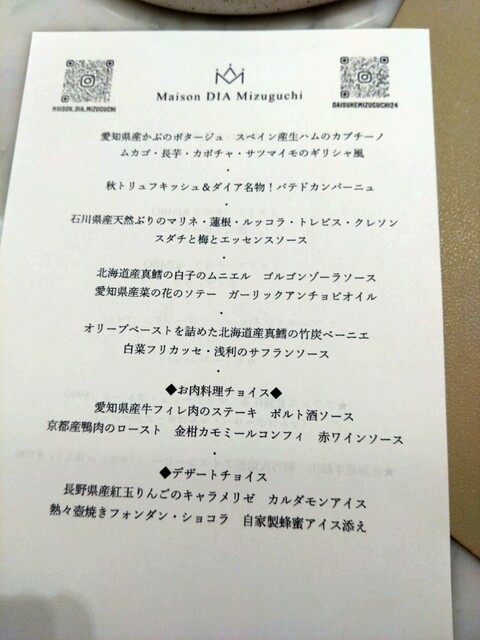 Maison DIA Mizuguchi
MAISON_DIA_MIZUGUCHI
DAISUKEMIZUGUCHI24
愛知県産かぶのポタージュ　スペイン産生ハムのカプチーノ
ムカゴ・長芋・カボチャ・サツマイモのギリシャ風
・
秋トリュフキッシュ＆ダイア名物！パテドカンパーニュ
・
石川県産天然ぶりのマリネ・蓮根・ルッコラ・トレビス・クレソン
スダチと梅とエッセンスソース
・
北海道産真鱈の白子のムニエル　ゴルゴンゾーラソース
愛知県産菜の花のソテー　ガーリックアンチョビオイル
・
オリーブペーストを詰めた北海道産真鱈の竹炭ベーニエ
白菜フリカッセ・浅利のサフランソース
・
◆お肉料理チョイス◆
愛知県産牛フィレ肉のステーキ　ポルト酒ソース
京都産鴨肉のロースト　金柑カモミールコンフィ　赤ワインソース
・
◆デザートチョイス
長野県産紅玉りんごのキャラメリゼ　カルダモンアイス
熱々壺焼きフォンダン・ショコラ　自家製蜂蜜アイス添え